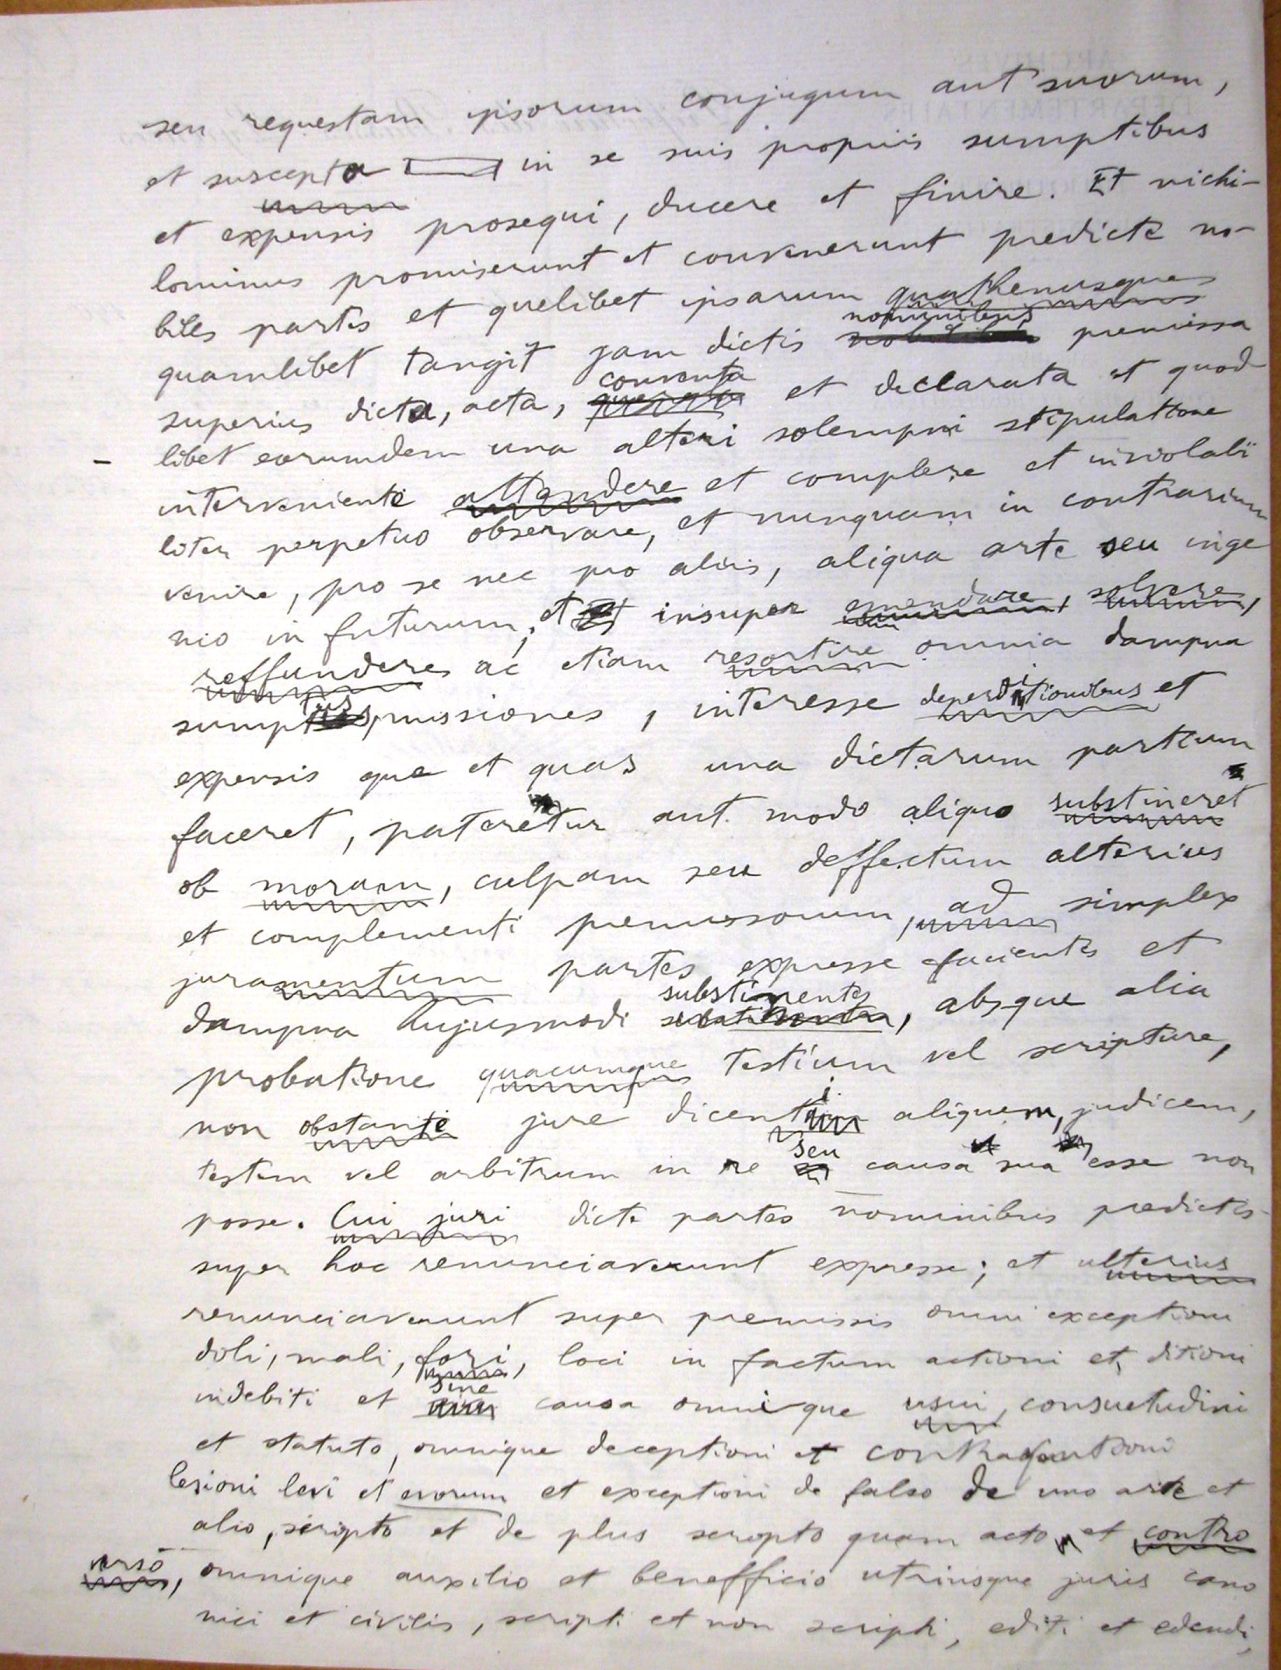 seu requestam ipsorum conjugum aut suorum,
et suscepta in se suis propriis sumptibus
et expensis prosequi, ducere et finire. Et nichi-
lominus promiserunt et convenerunt predicte no-
biles partes et quelibet ipsarum quathenusque
quamlibet tangit jam dictis nominibus premissa
superius dicta, acta, conventa et declarata et quod
libet eorumdem una alteri solempni stipulatione
interveniente attendere et complere et inviolabi
liter perpetuo observare, et nunquam in contrarium
venire, pro se nec pro aliis, aliqua arte seu inge
nio in futurum, et insuper emendare, solvere,
reffundere ac etiam resortire omnia dampna
sumptus, missiones, interesse deperditionibus et
expensis que et quas una dictarum partium
faceret, pateretur aut modo aliquo substineret
ob moram, culpam seu deffectum alterius
et complementi premissorum, ad simplex
juramentum partes expresse facientes et
dampna hujusmodi substinentes, absque alia
probatione quacumque testium vel scripture,
non obstante jure dicenti aliquem, judicem,
testem vel arbitrum in re seu causa sua esse non
posse. Cui juri dicte partes nominibus predictis
super hoc renunciaverunt expresse; et ulterius
renunciaverunt super premissis omni exceptioni
doli, mali, fori, loci in factum actioni et ditioni
indebiti et sine causa omnique usui, consuetudini
et statuto, omnique deceptioni et
lesioni levi et evorum et exceptioni de falso de uno acte et
alio, scripto et de plus scripto quam acto et contro
verso, omnique auxilio et benefficio utriusque juris cano
nici et civilis, scripti et non scripti, editi et edendi,